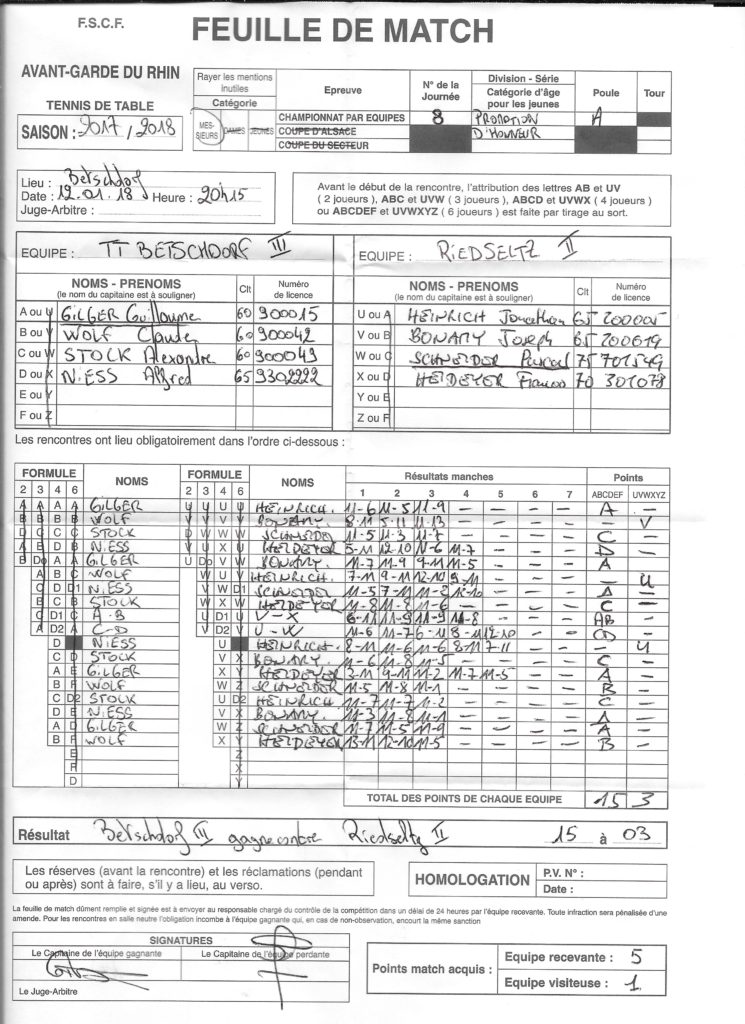 F.S.C.F.
FEUILLE DE MATCH
AVANT-GARDE DU RHIN
TENNIS DE TABLE
SAISON : 2017 / 2018
Rayer les mentions inutiles
Catégorie
MES-SIEURS DAMES JEUNES
Epreuve
CHAMPIONNAT PAR EQUIPES
COUPE D'ALSACE
COUPE DU SECTEUR
N° de la Journée
8
Division - Série
Catégorie d'âge pour les jeunes
PROMOTION
D'HONNEUR
Poule
A
Tour
Lieu : Betschdorf
Date : 12.01.18 Heure : 20h15
Juge-Arbitre :
Avant le début de la rencontre, l'attribution des lettres AB et UV
( 2 joueurs ), ABC et UVW ( 3 joueurs ), ABCD et UVWX ( 4 joueurs )
ou ABCDEF et UVWXYZ ( 6 joueurs ) est faite par tirage au sort.
EQUIPE : TT BETSCHDORF III
NOMS - PRENOMS Clt Numéro de licence
(le nom du capitaine est à souligner)
A ou U GILGER Guillaume 60 900015
B ou V WOLF Claude 60 900042
C ou W STOCK Alexandre 60 900049
D ou X NIESS Alfred 65 9302222
E ou Y
F ou Z
EQUIPE : RIEDSELTZ II
NOMS - PRENOMS Clt Numéro de licence
(le nom du capitaine est à souligner)
U ou A HEINRICH Jonathan 65 200005
V ou B BONAMY Joseph 65 200619
W ou C SCHNEIDER Pascal 75 701549
X ou D HEIDEYER Francis 70 301078
Y ou E
Z ou F
Les rencontres ont lieu obligatoirement dans l'ordre ci-dessous :
FORMULE NOMS FORMULE NOMS Résultats manches Points
2 3 4 6 2 3 4 6 1 2 3 4 5 6 7 ABCDEF UVWXYZ
A A A A GILGER U U U U HEINRICH 11-6 11-5 11-9 - - - - A -
B B B B WOLF V V V V BONAMY 8-11 5-11 11-13 - - - - - V
STOCK SCHNEIDER 11-5 11-3 11-7 - - - - C -
NIESS HEIDEYER 5-11 12-10 11-6 11-7 - - - D -
GILGER BONAMY 11-7 11-9 9-11 11-5 - - - A
WOLF HEINRICH 7-11 9-11 12-10 9-11 - - - - U
NIESS SCHNEIDER 11-5 7-11 11-2 12-10 - - - D -
STOCK HEIDEYER 11-8 11-8 11-6 - - - - C -
A-B V-X 6-11 11-9 11-9 11-8 - - - AB -
C-D U-W 11-6 11-7 6-11 8-11 12-10 - - CD -
NIESS HEINRICH 8-11 11-6 11-6 8-11 7-11 - - - U
STOCK BONAMY 11-6 11-8 11-5 - - - - C -
GILGER HEIDEYER 3-11 9-11 11-2 11-7 11-5 - - A -
WOLF SCHNEIDER 11-5 11-8 11-1 - - - - B -
STOCK HEINRICH 11-7 11-7 11-2 - - - - C -
NIESS BONAMY 11-3 11-8 11-1 - - - - D -
GILGER SCHNEIDER 11-7 11-5 11-9 - - - - A -
WOLF HEIDEYER 13-11 12-10 11-5 - - - - B -
TOTAL DES POINTS DE CHAQUE EQUIPE 15 3
Résultat Betschdorf III gagne contre Riedseltz II 15 à 03
Les réserves (avant la rencontre) et les réclamations (pendant
ou après) sont à faire, s'il y a lieu, au verso.
HOMOLOGATION
P.V. N° :
Date :
La feuille de match dûment remplie et signée est à envoyer au responsable chargé du contrôle de la compétition dans un délai de 24 heures par l'équipe recevante. Toute infraction sera pénalisée d'une
amende. Pour les rencontres en salle neutre l'obligation incombe à l'équipe gagnante qui, en cas de non-observation, encourt la même sanction
SIGNATURES
Le Capitaine de l'équipe gagnante Le Capitaine de l'équipe perdante
Le Juge-Arbitre
Points match acquis :
Equipe recevante : 5
Equipe visiteuse : 1